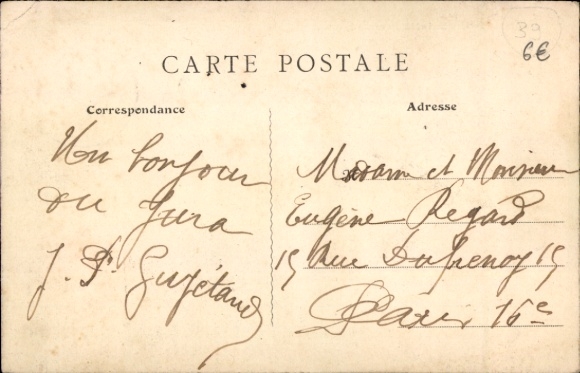 39
6€
CARTE POSTALE
Correspondance
Adresse
Un bonjour
du Jura
J. P. Guyétand
Madame et Monsieur
Eugène Regard
15 Rue Dufrenoy 15
Paris 16e